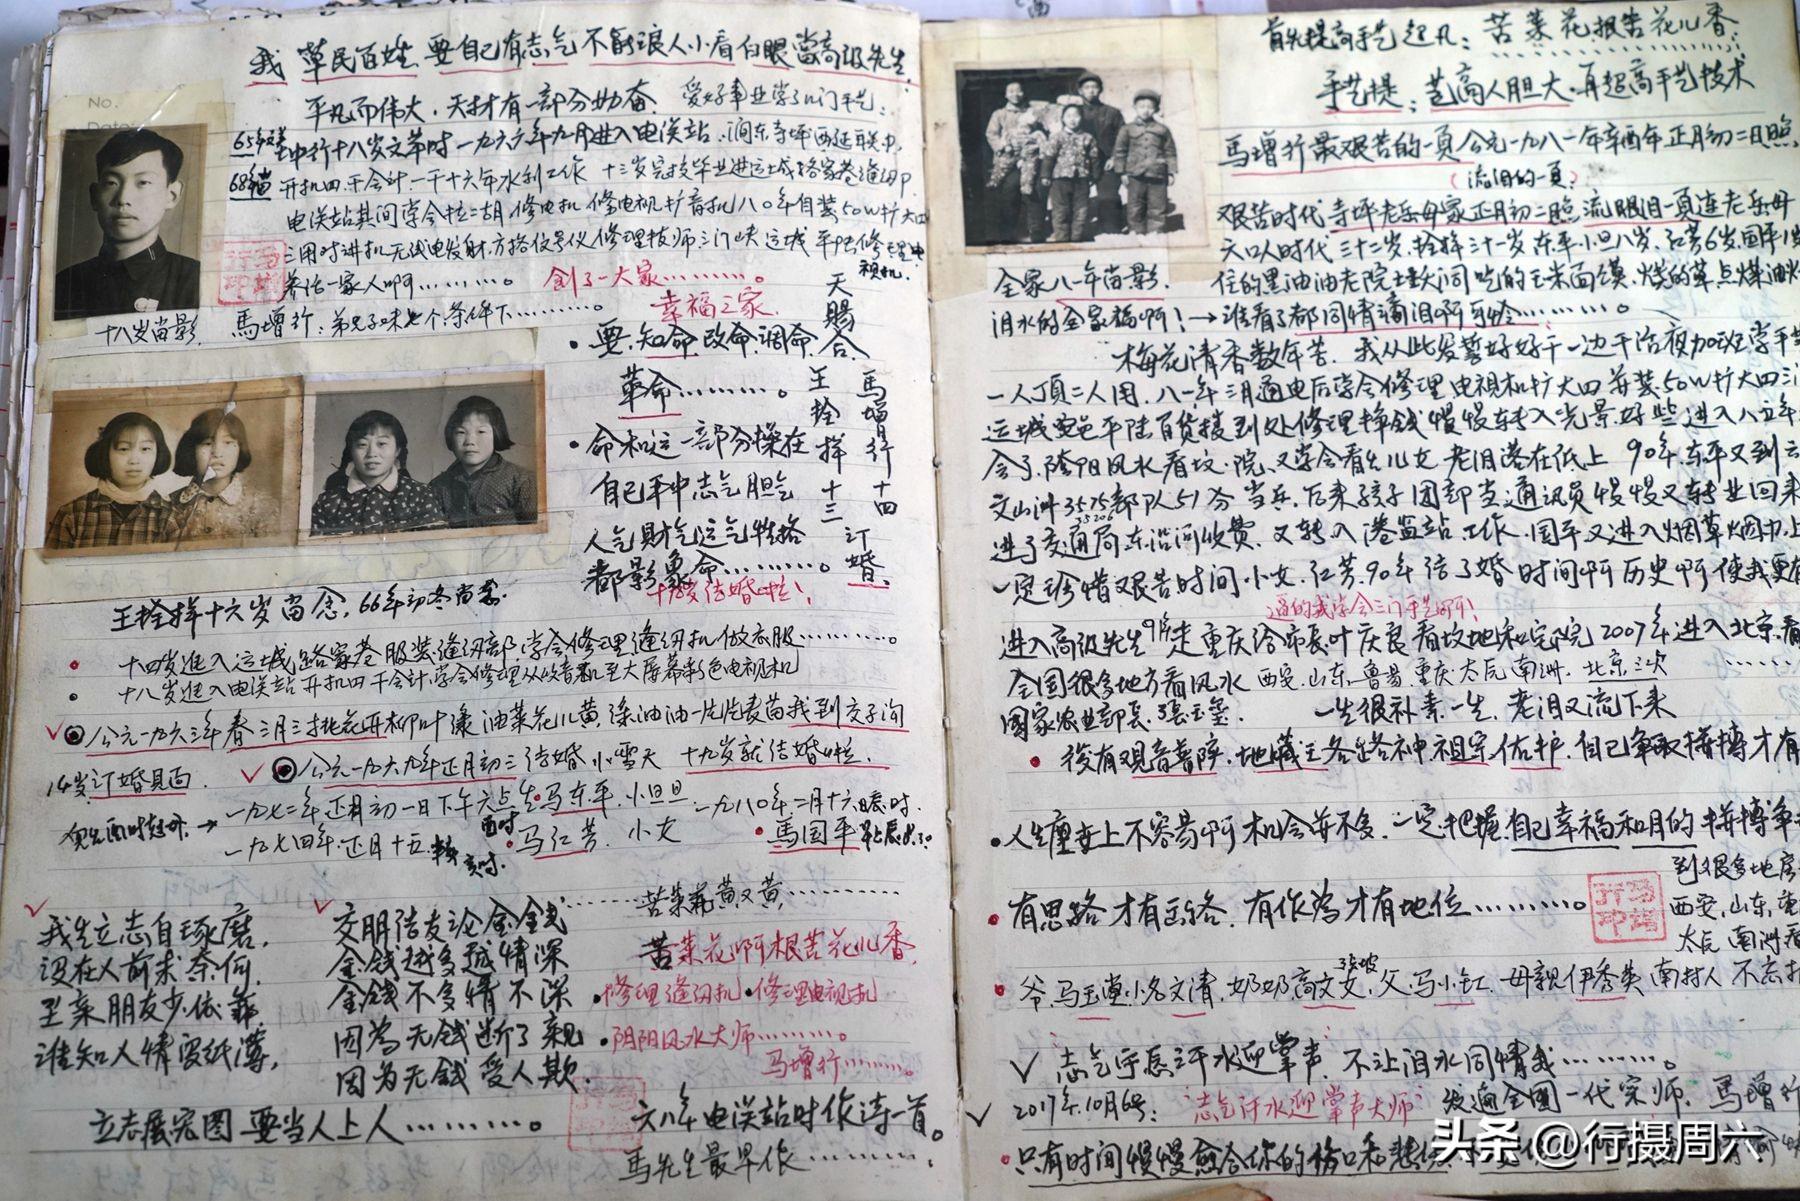 我 草民百姓 要自己有志气 不能浪人小看白眼 当高级先生.
平凡而伟大, 天才有一部分勤奋 爱好事业学了几门手艺:
十八岁文革时一九六六年九月进入电送站
开机四千会计一干十六年水利工作 十三岁完校毕业进运城路家巷缝纫
电送站其间学会拉二胡修电机修电视扩音机八〇年自装50W扩大
三用对讲机无线电发射 修理技师三门峡运城平陆修理电视机
养活一家人啊………。 创了一大家………。
十八岁留影 馬增行: 弟兄子妹七个条件下………。 幸福之家.
天賜合
·要.知命.改命.调命
革命………。
·命和运一部分操在
自己手中志气胆气
人气财气运气性格
都影象命………。
王拴样十三
馬增行十四订婚.
十九岁结婚啦!
王拴样十六岁留念, 66年初冬留影.
十四岁进入运城路家巷服装缝纫部学会修理缝纫机做衣服………。
十八岁进入电送站开机四干会计学会修理从收音机至大屏幕彩色电视机
公元一九六三年春三月三桃花开柳叶漾油菜花儿黄,绿油油一片片麦苗我到交子沟
14岁订婚見面. 公元一九六九年正月初三结婚小雪天 十九岁就结婚啦.
一九七二年正月初一日下午六点生.马东平.小旦旦 一九八〇年二月十六日辰时.
一九七四年.正月十五 酉时 ·马红芳. 小女 ·馬国平
我先立志自琢磨,
没在人前求奈何,
至亲朋友少依靠
谁知人情更纸薄,
立志展宏图 要当人上人………。
交朋结友论金钱
金钱越多越情深
金钱不多情不深
因为无钱断了亲
因为无钱受人欺.
苦菜花黄又黄,………
苦菜花啊根苦花儿香,
·修理缝纫机·修理电视机
·阴阳风水大师………。
马增行………。
六八年电送站时作诗一首。
馬先生最早作………
首先提高手艺起凡: 苦菜花.根苦花儿香.
手艺提: 艺高人胆大.再超高手艺技术
馬增行最艰苦的一頁公元一九八一年辛酉年正月初二日照,
(流泪的一頁)
艰苦时代寺坪老岳母家正月初二照流眼泪一頁连老岳母
六口人时代三十二岁.拴样三十一岁.东平.小旦八岁.红芳6岁.国平1岁
全家八一年留影. 住的黑油油老院土坯间吃的玉米面馍.烧的草点煤油
泪水的全家福啊!→谁看了都同情滴泪啊可怜………。
梅花清香数年苦. 我从此发誓好好干一边干活夜加班学手
一人顶二人用.八一年三月通电后学会修理电视机扩大四 并装50W扩大四三
运城 平陆百货楼到处修理挣钱慢慢转入光景好些进入八五年
会了阴阳风水看坟.院.又学会看生儿女 老泪落在纸上 90年.东平又到云
文山洲35206部队51分 当兵.后来孩子团部当通讯员慢慢又转业回来
进了交通局东沿河收费. 又转入港监站工作.国平又进入烟草烟办上
一定珍惜艰苦时间.小女.红芳.90年结了婚 时间啊 历史啊 使我更
逼的我学会三门手艺啊!
进入高级先生98年走重庆给市长叶庆良看坟地和宅院 2007年进入北京.看
全国很多地方看风水 西安.山东.鲁易.重庆.太瓦.南洲.北京三次
国家农业部长.張玉玺. 一生很朴素一生.老泪又流下来
·後有观音菩萨.地藏王各路各神.祖宗佑护.自己争取拼搏才有
·人生尘世上不容易啊 机会并不多.一定把握.自己幸福和目的 拼搏争
·有思路才有出路. 有作為才有地位………。
到很多地房
西安,山东,重
太瓦 南洲看
·爷.马玉堂.小名文清.奶奶高文女 張坡.父.马小红.母親伊秀英 南村人 不忘
✓ 志气 汗水迎掌声. 不让泪水同情我………。
2017年.10月6号: "志气汗水迎掌声大师" 发遍全国一代宗师. 馬增行
·只有时间慢慢愈合你的伤口和悲
头条@行摄周六